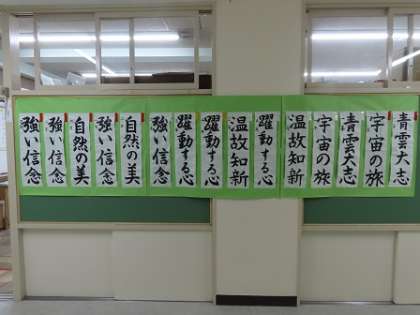 青雲大志
宇宙の旅
青雲大志
宇宙の旅
温故知新
躍動する心
温故知新
躍動する心
躍動する心
強い信念
自然の美
強い信念
自然の美
強い信念
強い信念